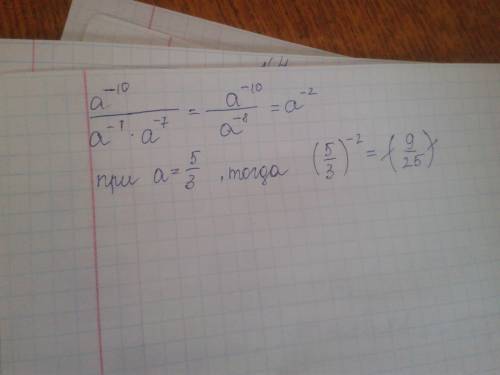 a⁻¹⁰ / (a⁻¹ · a⁻⁷) = a⁻¹⁰ / a⁻⁸ = a⁻²
при a = 5/3 , тогда (5/3)⁻² = (9/25)